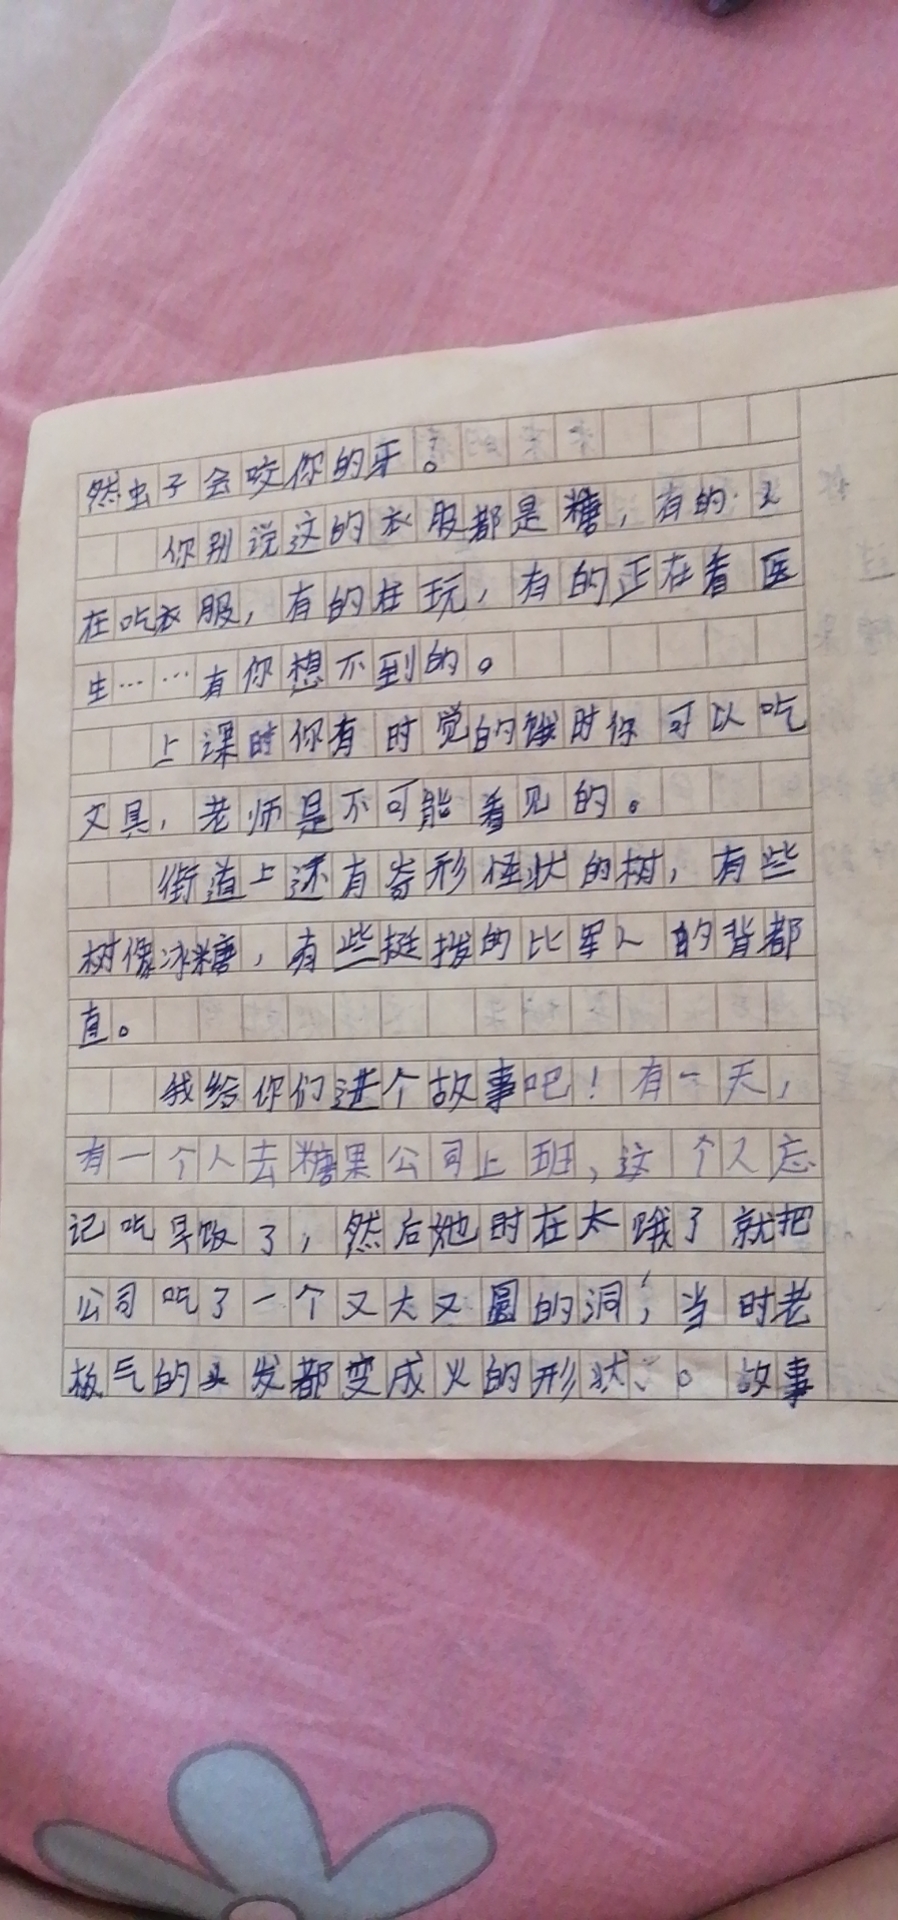 然虫子会咬你的牙。
你别说这的衣服都是糖，有的
在吃衣服，有的在玩，有的正在看医
生……有你想不到的。
上课时你有时觉的饿时你可以吃
文具，老师是不可能看见的。
街道上还有奇形怪状的树，有些
树像冰糖，有些挺拨的比军人的背都
直。
我给你们进个故事吧！有一天，
有一个人去糖果公司上班，这个人忘
记吃早饭了，然后她时在太哦了就把
公司吃了一个又大又圆的洞，当时老
板气的头发都变成火的形状。故事